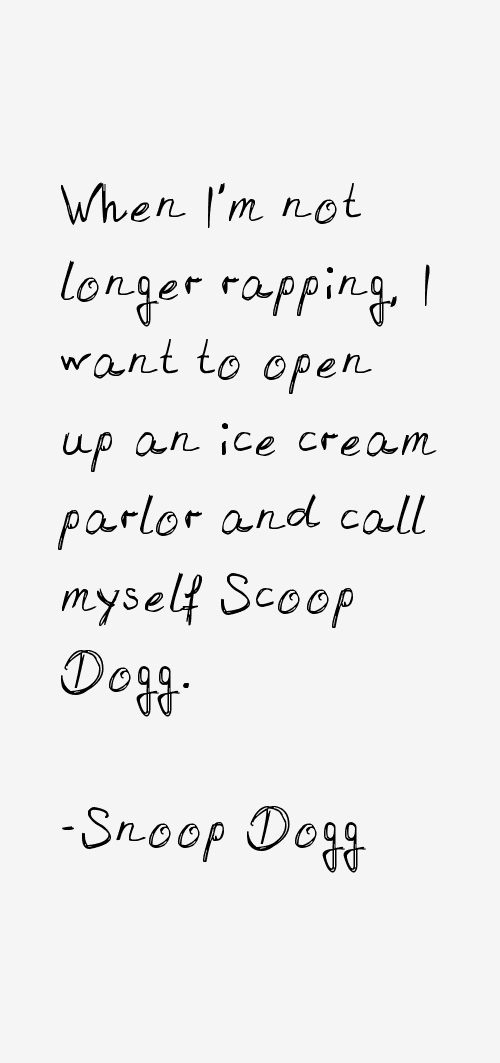 When I'm not
longer rapping, I
want to open
up an ice cream
parlor and call
myself Scoop
Dogg.
-Snoop Dogg